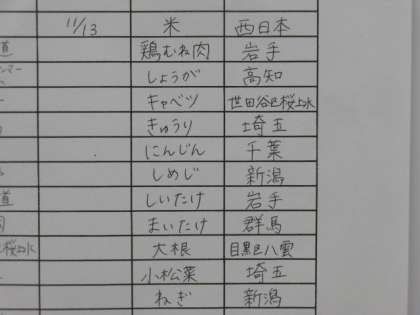 11/13 米 西日本
道 鶏むね肉 岩手
しょうが 高知
キャベツ 世田谷区桜上水
きゅうり 埼玉
にんじん 千葉
しめじ 新潟
道 しいたけ 岩手
まいたけ 群馬
桜上水 大根 目黒区八雲
小松菜 埼玉
ねぎ 新潟